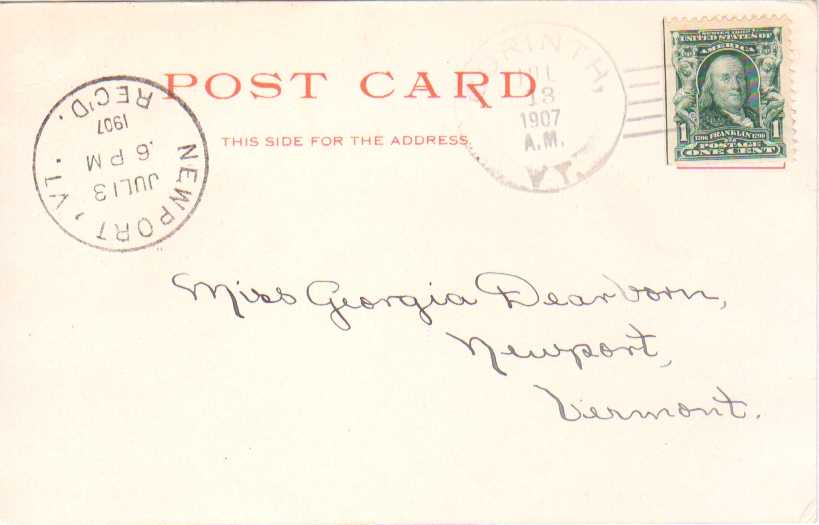 POST CARD
THIS SIDE FOR THE ADDRESS
CORINTH,
JUL
13
1907
A.M.
VT.
SERIES 1902
UNITED STATES OF
AMERICA
1706 FRANKLIN 1790
1 1
POSTAGE
ONE CENT
NEWPORT, VT.
JUL 13
6 PM
1907
REC'D.
Miss Georgia Dearborn,
Newport,
Vermont.